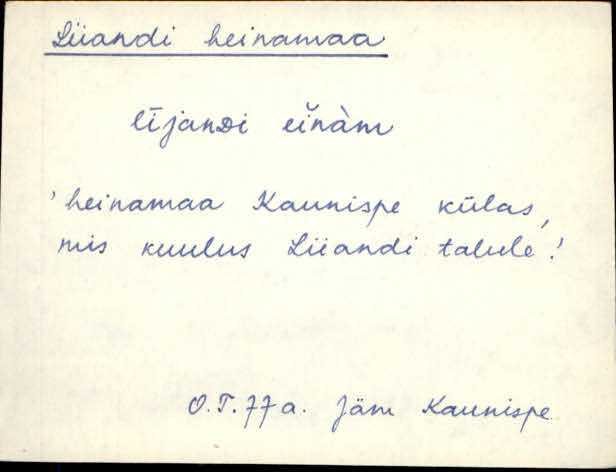 Liiandi heinamaa
lījanDi eiňàm
'heinamaa Kaunispe külas,
mis kuulus Liiandi talule.'
O.T. 77a. Jäm Kaunispe